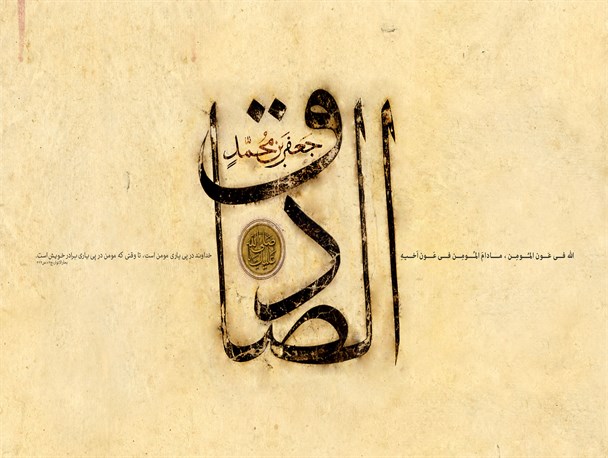 الصادق
جَعفَر بن مُحمَّدٍ
صلى الله عليه
الله فـي عَون المُـومِـن ، مـادامَ المُـومِـن فـي عَـون اَخـیهِ
خداوند در پی یاری مومن است، تا وقتی که مومن در پی یاری برادر خویش است.